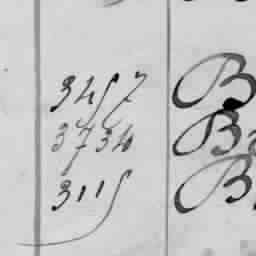 3457 B
3734 B
3115 B